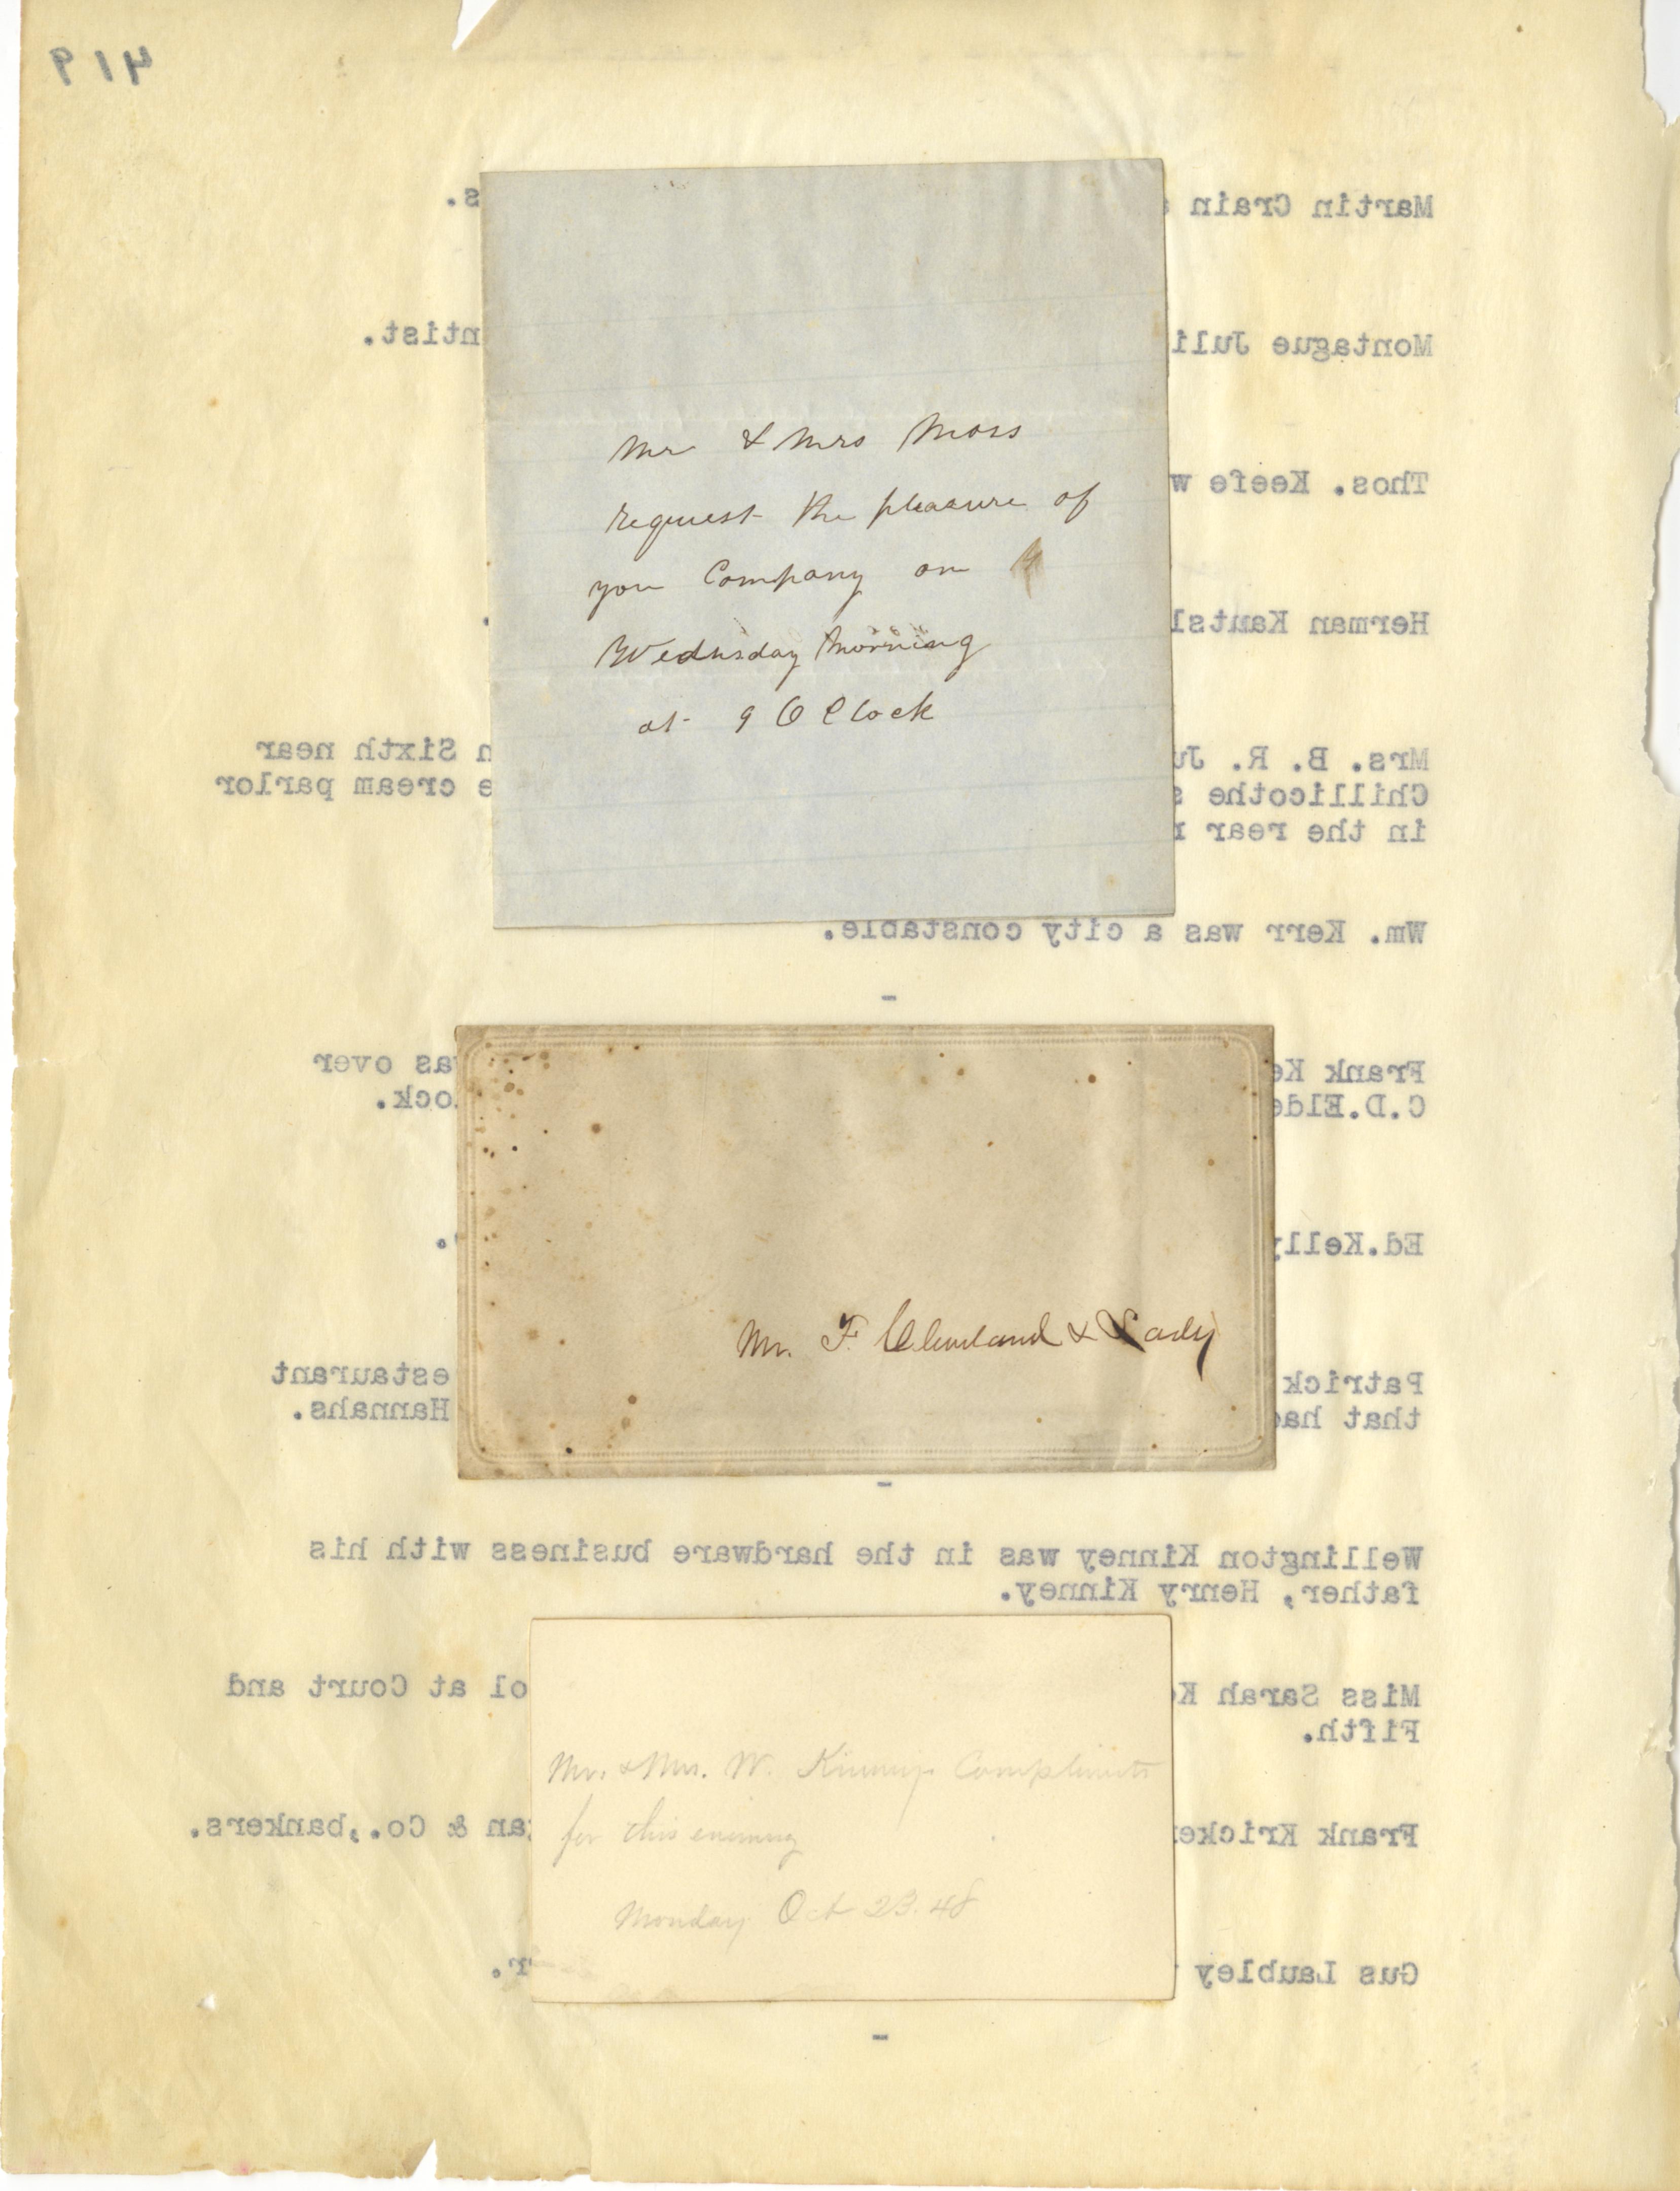 419
Martin Crain
s.
Montague Juli
ntist.
Thos. Keefe w
Herman Kautsl
Mrs. B. R. Ju
n Sixth near
Chillicothe s
e cream parlor
in the rear r
Wm. Kerr was a city constable.
-
Frank Ke
as over
C.D.Elde
ock.
Ed.Kelly
Patrick
estaurant
that had
Hannahs.
-
Wellington Kinney was in the hardware business with his
father, Henry Kinney.
Miss Sarah Ke
ol at Court and
Fifth.
Frank Kricker
an & Co., bankers.
Gus Laubley
r.
-
Mr & Mrs Moss
request the pleasure of
you Company on
Wednsday morning
at 9 O Clock
Mr. F. Cleveland & Lady
Mr. & Mrs. W. Kinney's Compliments
for this evening
Monday Oct 23. 48